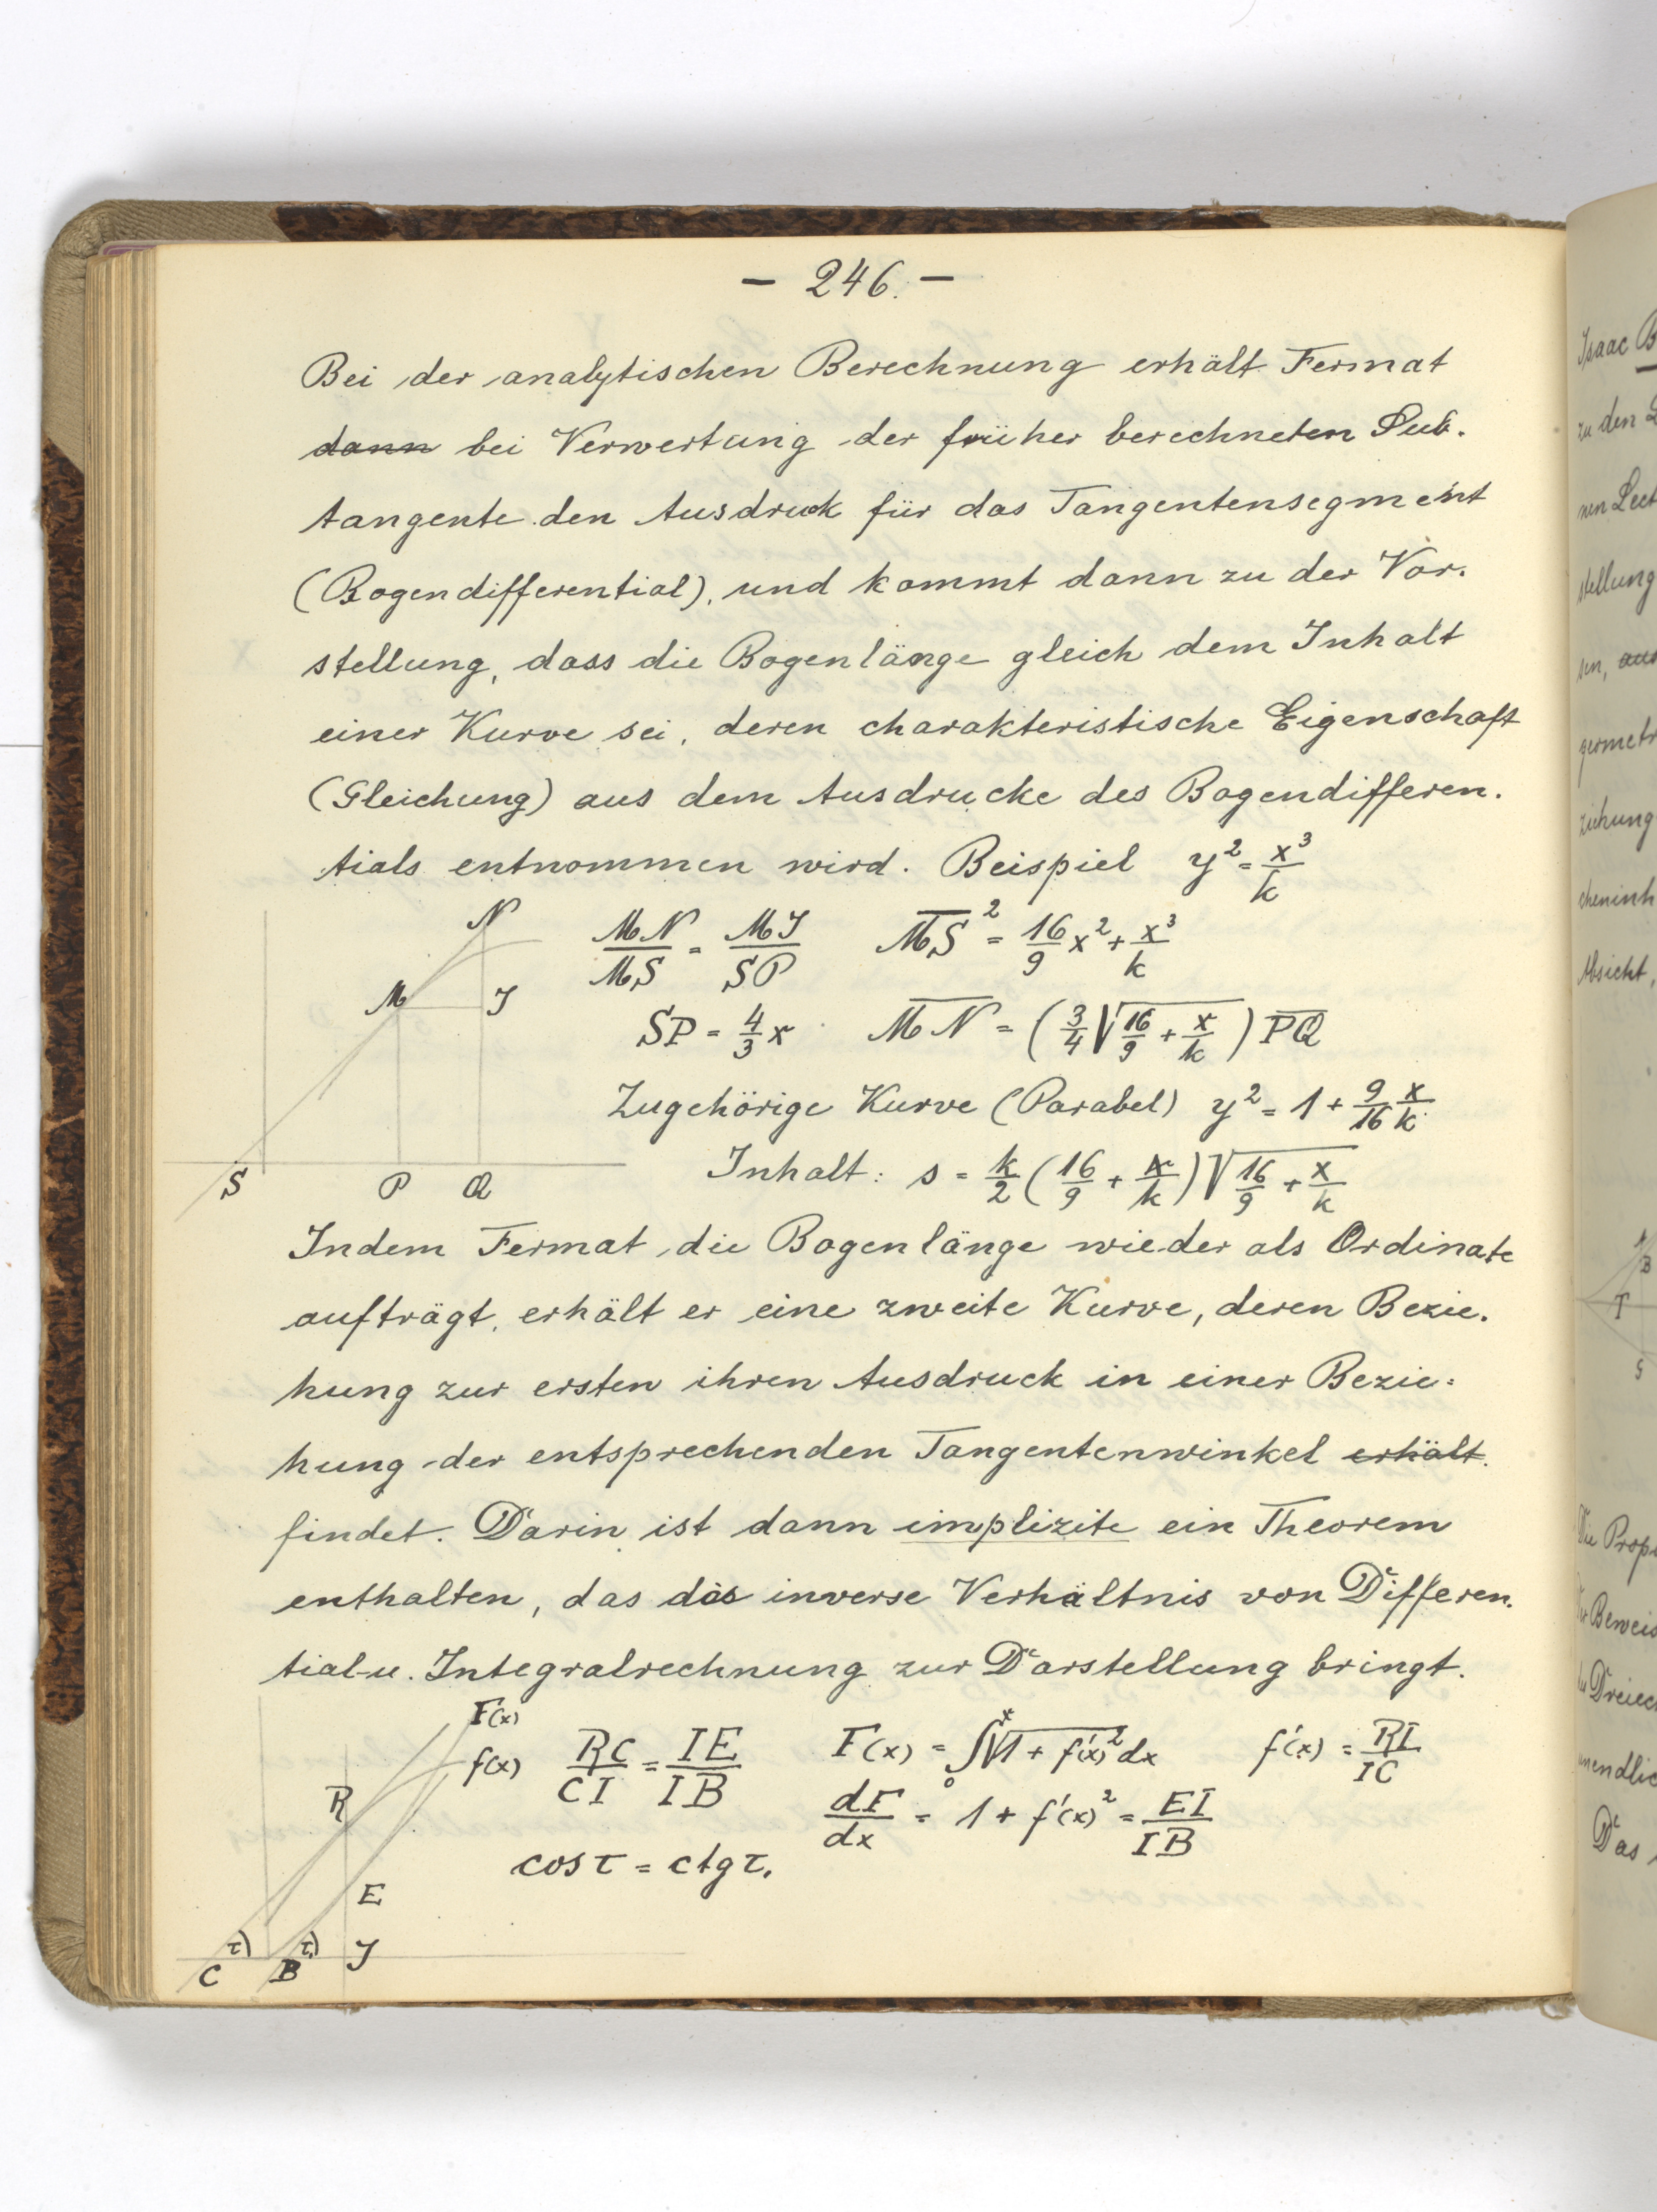 - 246. -
Bei der analytischen Berechnung erhält Fermat
dann bei Verwertung der früher berechneten Sub-
tangente den Ausdruck für das Tangentensegment
(Bogendifferential), und kommt dann zu der Vor-
stellung, dass die Bogenlänge gleich dem Inhalt
einer Kurve sei, deren charakteristische Eigenschaft
(Gleichung) aus dem Ausdrucke des Bogendifferen-
tials entnommen wird. Beispiel y² = x³/k
N
M
J
S P Q
MN/MS = MJ/SP  M̅S̅² = 16/9 x² + x³/k
SP = 4/3 x  M̅N̅ = (3/4 √(16/9 + x/k)) P̅Q̅
Zugehörige Kurve (Parabel) y² = 1 + 9/16 x/k
Inhalt: s = k/2 (16/9 + x/k) √(16/9 + x/k)
Indem Fermat die Bogenlänge wieder als Ordinate
aufträgt, erhält er eine zweite Kurve, deren Bezie-
hung zur ersten ihren Ausdruck in einer Bezie=
hung der entsprechenden Tangentenwinkel erhält.
findet. Darin ist dann implizite ein Theorem
enthalten, das das inverse Verhältnis von Differen-
tial- u. Integralrechnung zur Darstellung bringt.
F(x)
f(x)
R
E
τ) τ₁)
C B J
RC/CI = IE/IB  F(x) = ∫₀ˣ √(1 + f'(x)²) dx  f'(x) = RI/IC
dF/dx = 1 + f'(x)² = EI/IB
cos τ = ctg τ₁
Isaac B
zu den
nen Lect
stellung
sen, aus
geometr
ziehung
cheninh
Absicht,
B
T
S
Die Prop
Beweis
Dreiec
unendlic
Das